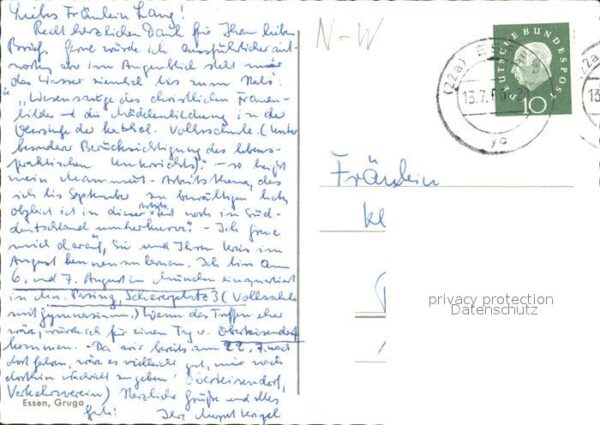 Liebes Fräulein Lang!
Recht herzlichen Dank für Ihren lieben
Brief. Gerne würde ich ausführlicher ant-
worten, aber im Augenblick steht mir
das Wasser ziemlich bis zum Hals:
"Wesenszüge des christlichen Frauen-
bildes und die Mädchenbildung in der
Oberstufe der kathol. Volksschule (Unter
besonderer Berücksichtigung des lebens-
praktischen Unterrichts)" - so heißt
mein Mammut-Arbeitsthema, das
ich bis September zu bewältigen habe,
obgleich ich in dieser Zeit noch in Süd-
deutschland umherkurve. - Ich freue
mich darauf, Sie und Ihren Kreis im
August kennenzulernen. Ich bin am
6. und 7. August in München einquartiert
in Mü. Pasing, Schererplatz 3 (Volksschule
mit Gymnasium.) Wenn das Treffen eher
wäre, würde ich für einen Tag v. Oberteisendorf
kommen. - Da wir bereits am 22.7. nach
dort fahren, wäre es vielleicht gut, mir nach
dorthin Nachricht zu geben! (Oberteisendorf,
Verkehrsverein) Herzliche Grüße und alles
Gute! Ihre
Essen, Gruga
N-W
(22a) ESSEN
13.7.60
yc
DEUTSCHE BUNDESPOST
10
(22a)
13
Fräulein
privacy protection
Datenschutz